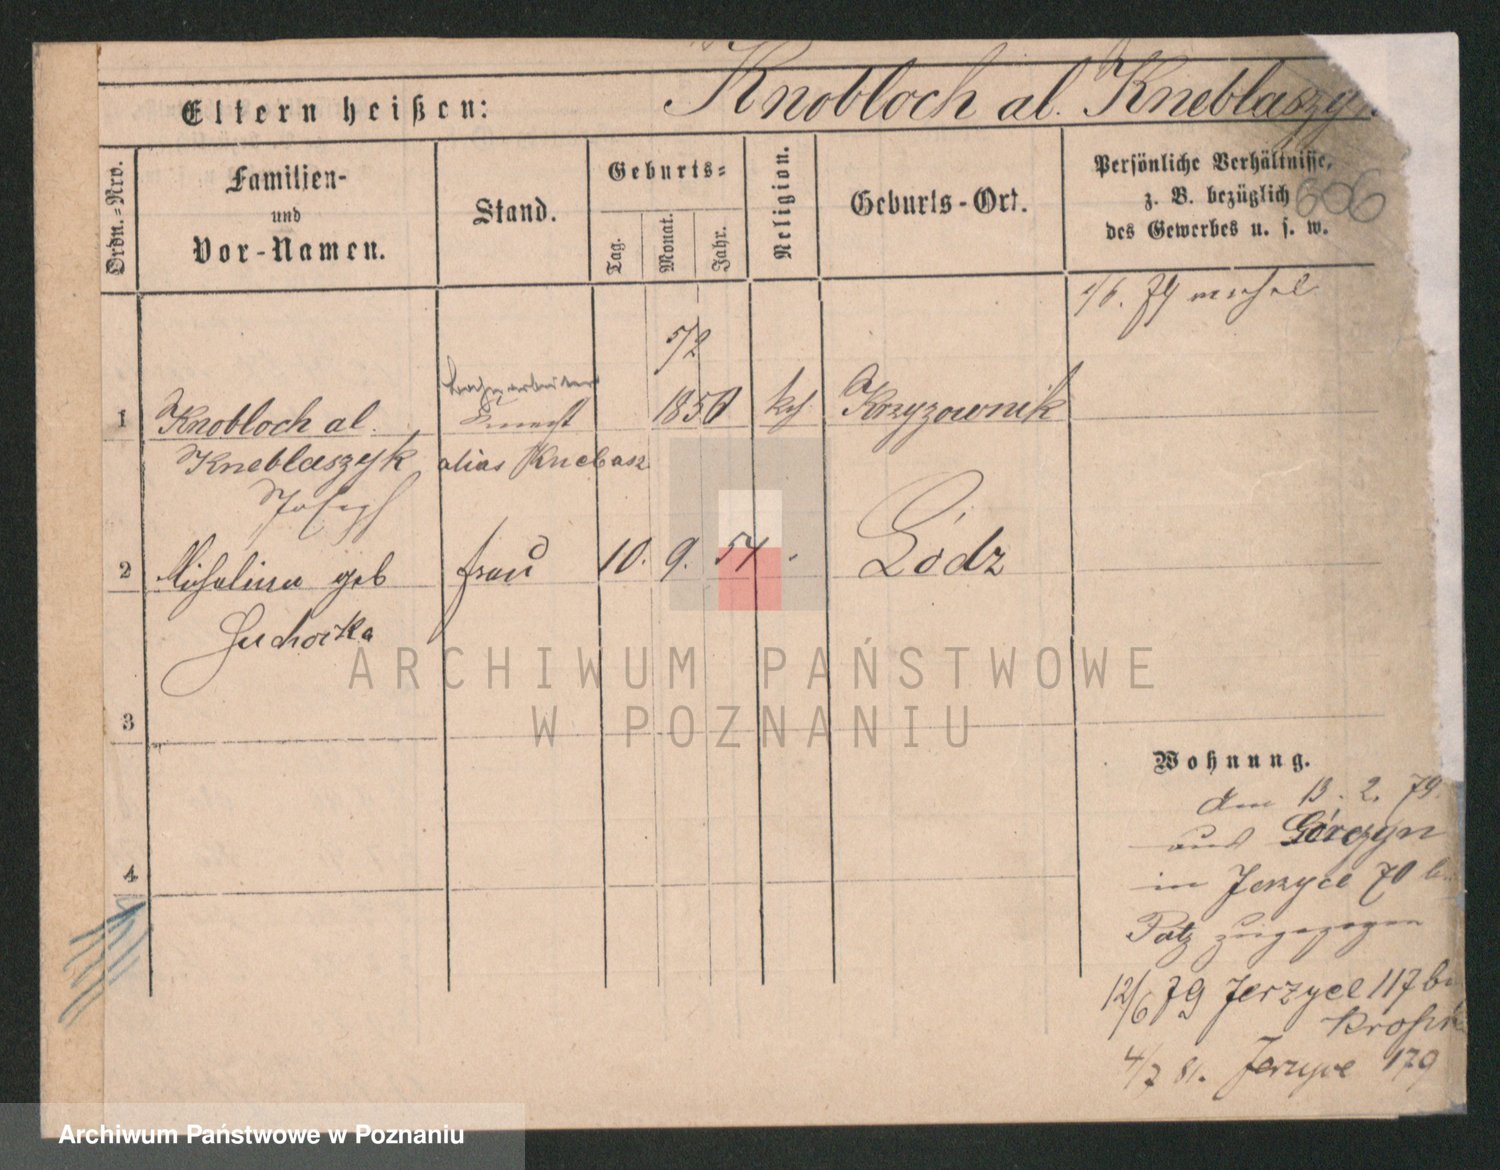 Knobloch al. Kneblaszy
Eltern heißen:
Ordn.-Nro.
Familien-
und
Vor-Namen.
Stand.
Geburts-
Tag.
Monat.
Jahr.
Religion.
Geburts-Ort.
Persönliche Verhältnisse,
z. B. bezüglich
des Gewerbes u. s. w.
606
5/2
1 Knobloch al. 1850 kth Krzyzownik
Kneblaszyk alias Knebasz
Joseph
2 Michalina geb frau 10. 9. 54 - Lódz
Suchocka
3
4
Wohnung.
den 13. 2. 79.
aus Górczyn
in Jerzyce 70
Patz zugezogen
12/6 79 Jerzyce 117 b
4/7 81. Jerzyce 179
ARCHIWUM PAŃSTWOWE
W POZNANIU
Archiwum Państwowe w Poznaniu